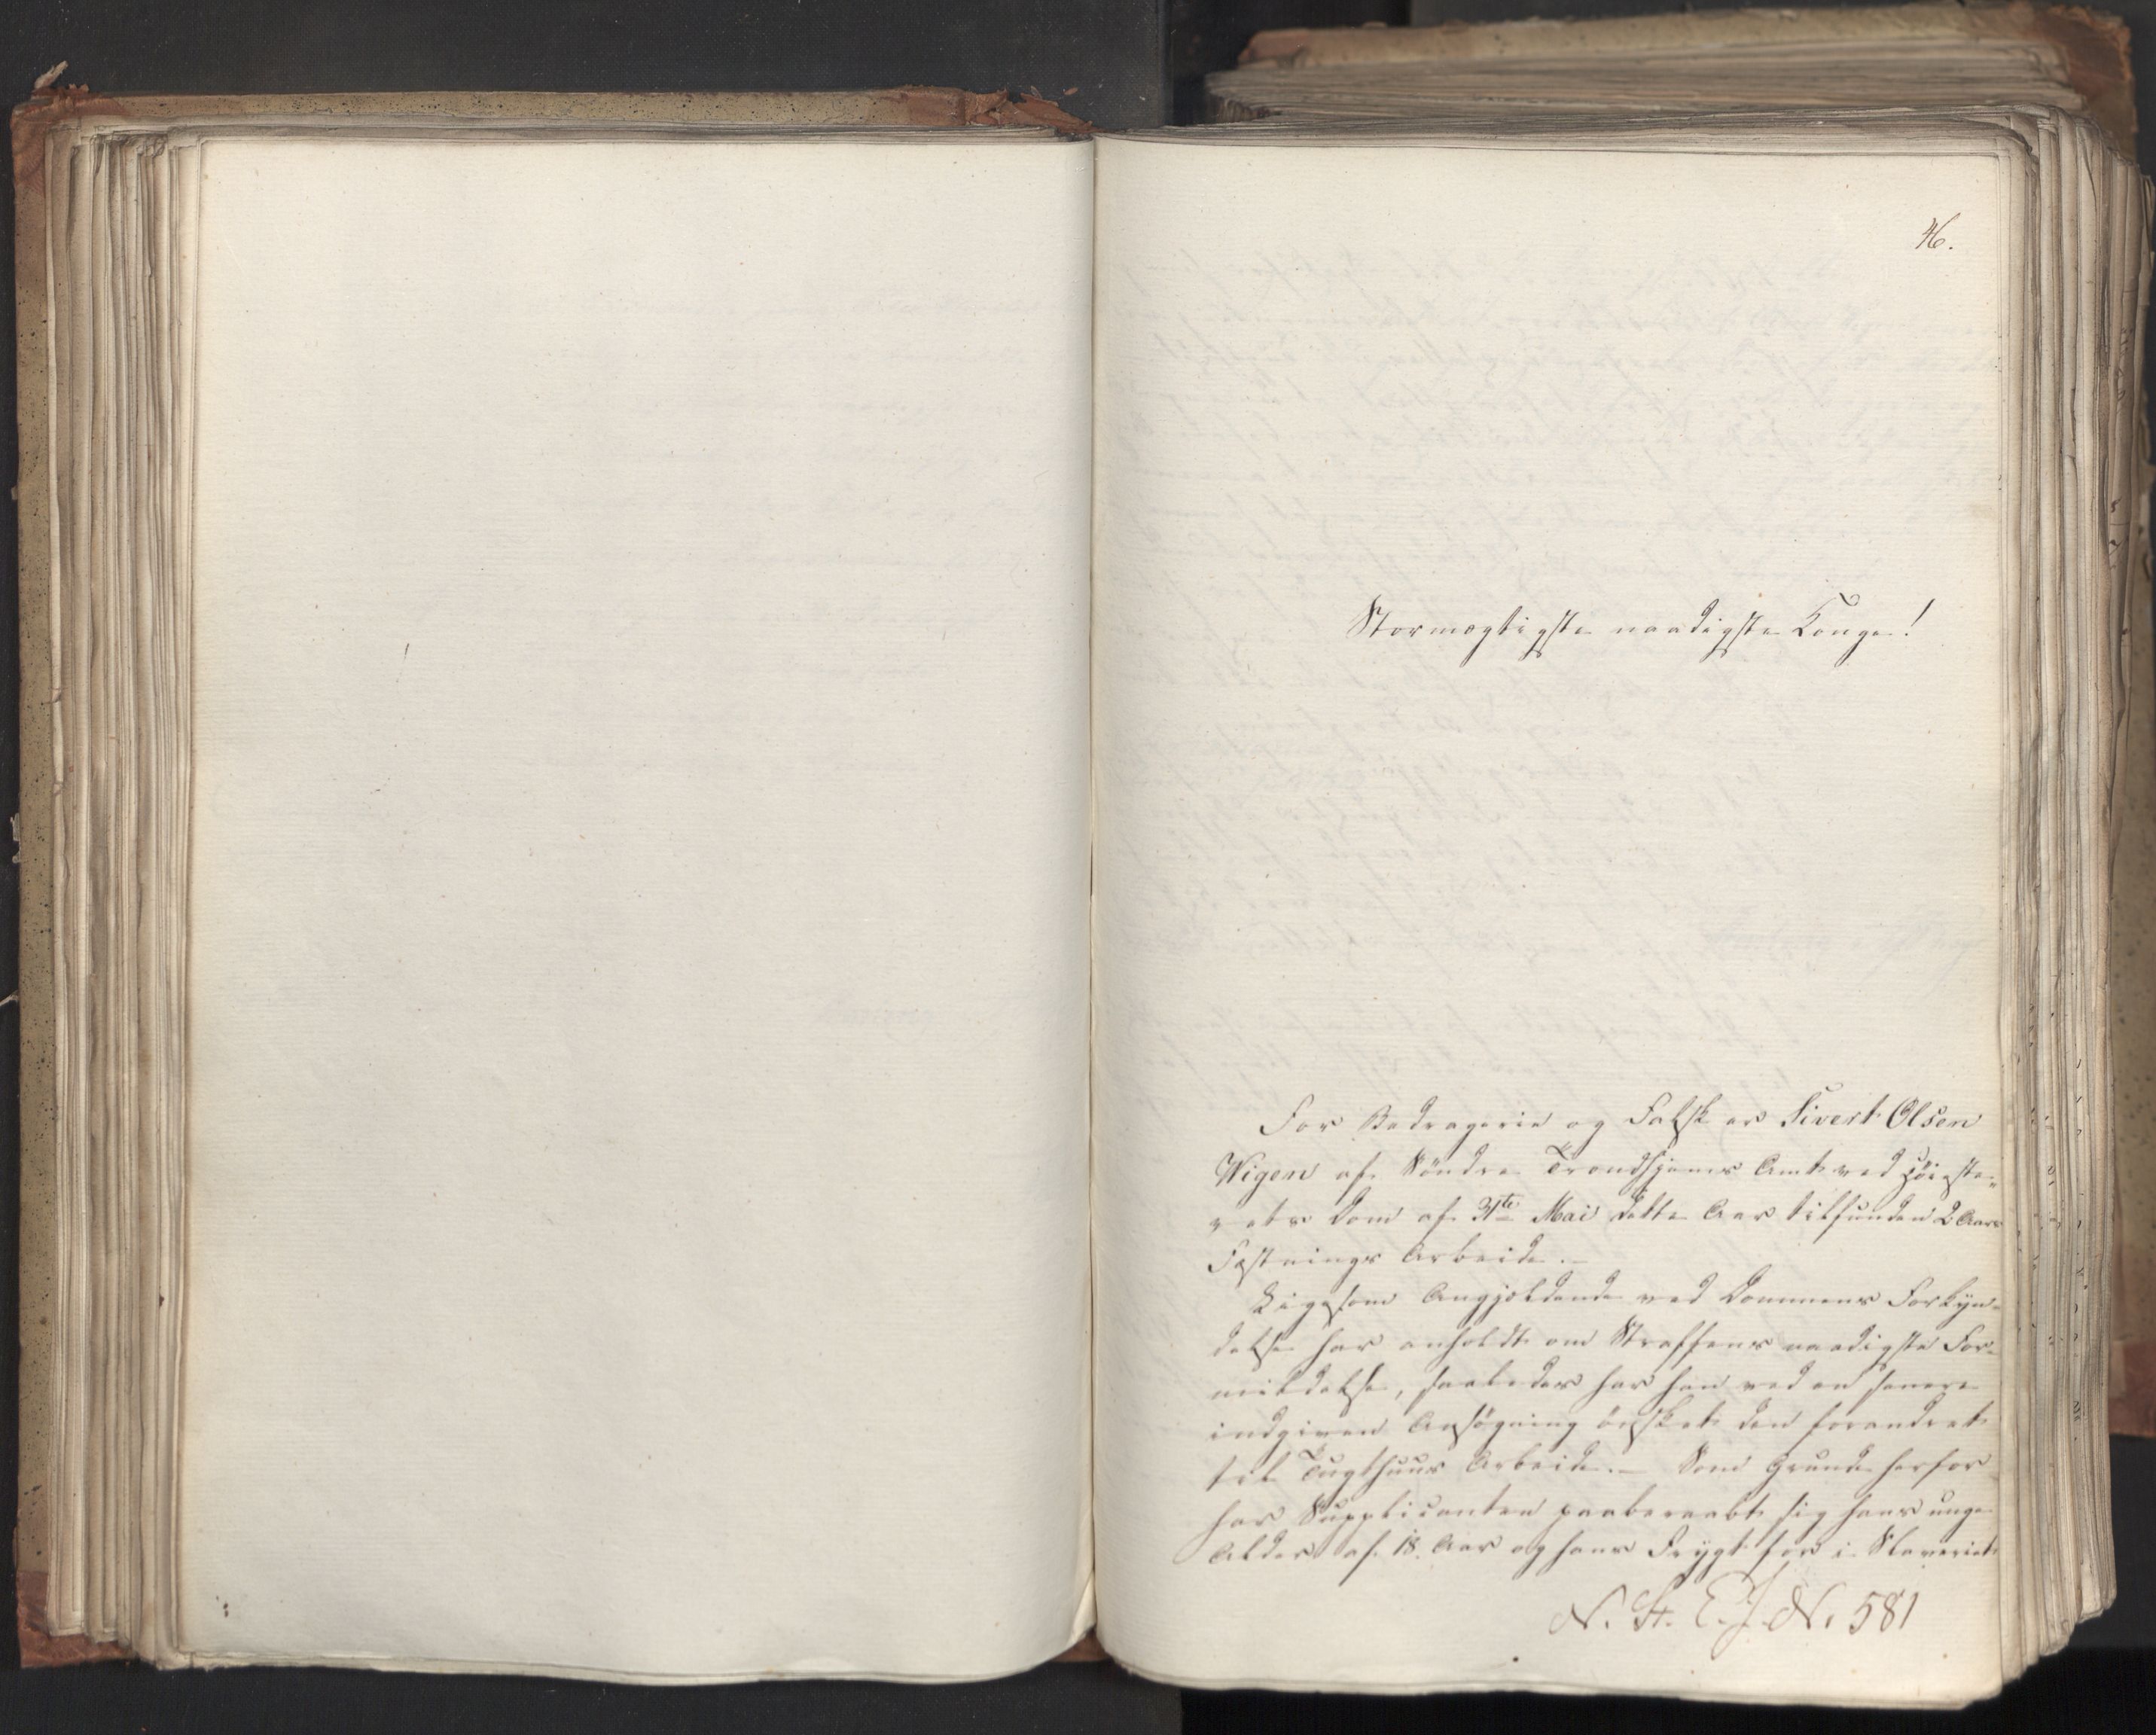 46.
Stormægtigste naadigste Konge!
For Bedragerie og Falsk er Sivert Olsen
Wigen af Söndre Trondhjems Amt ved Höieste-
rets Dom af 31te Mai dette Aar tilfunden 2 Aars
Fæstnings Arbeide.-
Ligesom Angjældende ved Dommens Forkyn-
delse har anholdt om Straffens naadigste For-
mildelse, saaledes har han ved en senere
indgiven Ansögning önsket den forandret
til Tugthuus Arbeide.- Som Grunde herfor
har Supplicanten paaberaabt sig hans unge
Alder af 18 Aar og hans Frygt for i Slaveriet
N. St. E. J. No. 581